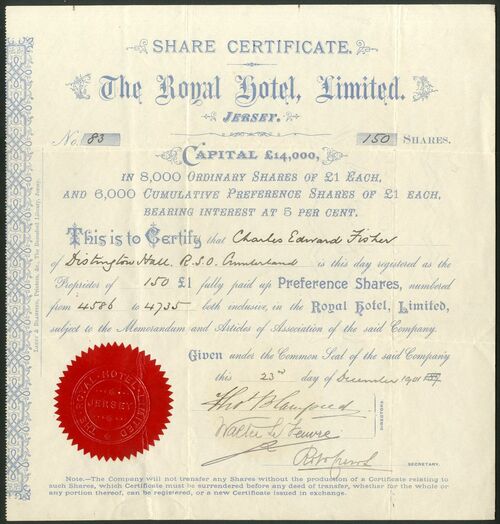 SHARE CERTIFICATE.
The Royal Hotel, Limited.
JERSEY.
No. 83 150 SHARES.
CAPITAL £14,000,
IN 8,000 ORDINARY SHARES OF £1 EACH,
AND 6,000 CUMULATIVE PREFERENCE SHARES OF £1 EACH,
BEARING INTEREST AT 5 PER CENT.
This is to Certify that Charles Edward Fisher
of Distington Hall. R.S.O. Cumberland is this day registered as the
Proprietor of 150 £1 fully paid up Preference Shares, numbered
from 4586 to 4735 both inclusive, in the Royal Hotel, Limited,
subject to the Memorandum and Articles of Association of the said Company.
Given under the Common Seal of the said Company
this 23rd day of December 1901
DIRECTORS.
Walter
SECRETARY.
THE ROYAL HOTEL LIMITED
JERSEY
Note.—The Company will not transfer any Shares without the production of a Certificate relating to
such Shares, which Certificate must be surrendered before any deed of transfer, whether for the whole or
any portion thereof, can be registered, or a new Certificate issued in exchange.